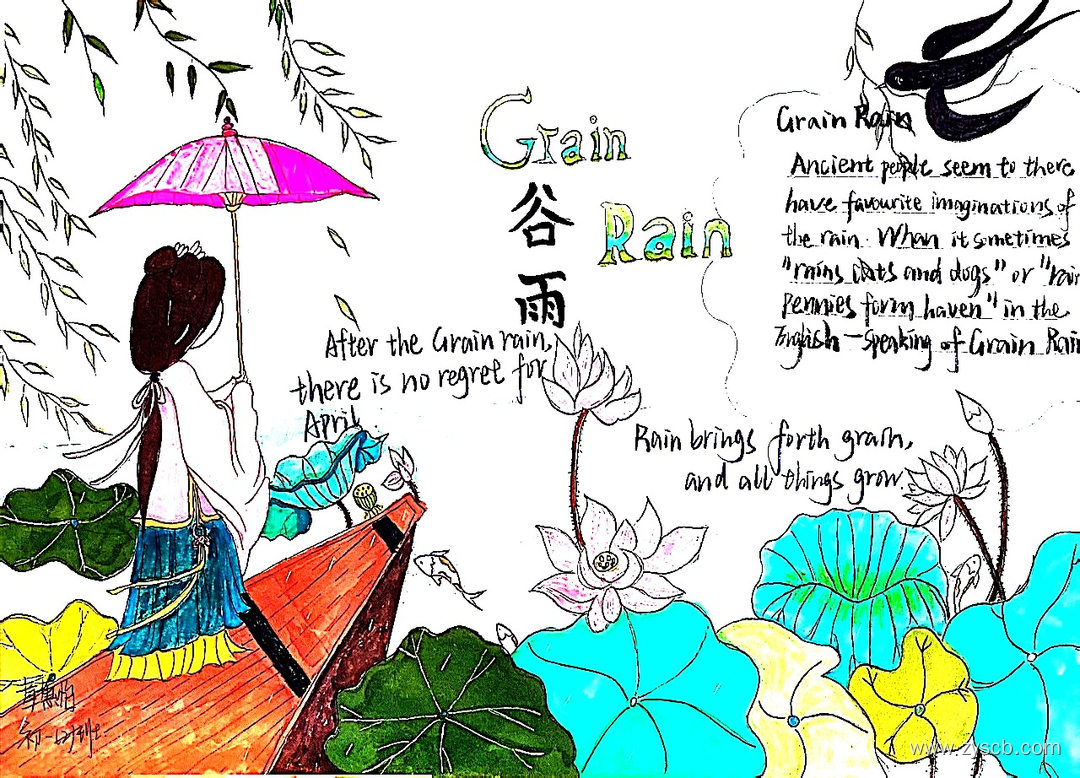 Grain
谷
雨
Rain
Grain Rain
Ancient people seem to there
have favourite imaginations of
the rain. When it sometimes
"rains cats and dogs" or "rain
Pennies form haven" in the
English-speaking of Grain Rain
After the Grain rain,
there is no regret for
April
Rain brings forth grain,
and all things grow.
初一
www.zyscb.com